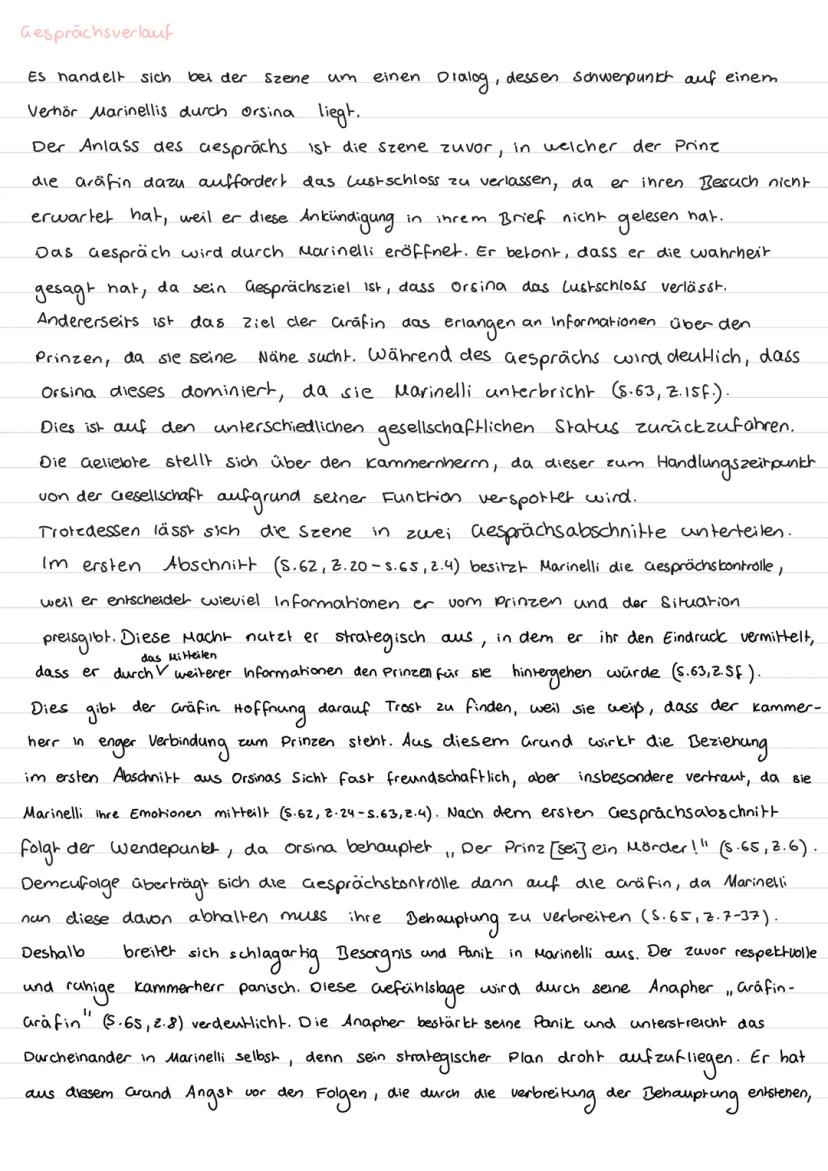 Gesprächsverlauf
Es handelt sich bei der Szene um einen Dialog, dessen Schwerpunkt auf einem
Verhör Marinellis durch Orsina liegt.
Der Anlass des Gesprächs ist die Szene zuvor, in welcher der Prinz
die Gräfin dazu auffordert das Lustschloss zu verlassen, da er ihren Besuch nicht
erwartet hat, weil er diese Ankündigung in ihrem Brief nicht gelesen hat.
Das Gespräch wird durch Marinelli eröffnet. Er betont, dass er die Wahrheit
gesagt hat, da sein Gesprächsziel ist, dass Orsina das Lustschloss verlässt.
Andererseits ist das Ziel der Gräfin das erlangen an Informationen über den
Prinzen, da sie seine Nähe sucht. Während des Gesprächs wird deutlich, dass
Orsina dieses dominiert, da sie Marinelli unterbricht (S.63, Z.15f.).
Dies ist auf den unterschiedlichen gesellschaftlichen Status zurückzuführen.
Die Geliebte stellt sich über den Kammerherrn, da dieser zum Handlungszeitpunkt
von der Gesellschaft aufgrund seiner Funktion verspottet wird.
Trotzdessen lässt sich die Szene in zwei Gesprächsabschnitte unterteilen.
Im ersten Abschnitt (S.62, Z.20-S.65, Z.4) besitzt Marinelli die Gesprächskontrolle,
weil er entscheidet wieviel Informationen er vom Prinzen und der Situation
preisgibt. Diese Macht nutzt er strategisch aus, in dem er ihr den Eindruck vermittelt,
das Mitteilen
dass er durch weiterer Informationen den Prinzen für sie hintergehen würde (S.63, Z.5f).
Dies gibt der Gräfin Hoffnung darauf Trost zu finden, weil sie weiß, dass der Kammer-
herr in enger Verbindung zum Prinzen steht. Aus diesem Grund wirkt die Beziehung
im ersten Abschnitt aus Orsinas Sicht fast freundschaftlich, aber insbesondere vertraut, da sie
Marinelli ihre Emotionen mitteilt (S.62, Z.24-S.63, Z.4). Nach dem ersten Gesprächsabschnitt
folgt der Wendepunkt, da Orsina behauptet „Der Prinz [sei] ein Mörder!" (S.65, Z.6).
Demzufolge überträgt sich die Gesprächskontrolle dann auf die Gräfin, da Marinelli
nun diese davon abhalten muss ihre Behauptung zu verbreiten (S.65, Z.7-37).
Deshalb breitet sich schlagartig Besorgnis und Panik in Marinelli aus. Der zuvor respektvolle
und ruhige Kammerherr panisch. Diese Gefühlslage wird durch seine Anapher „Gräfin-
Gräfin" (S.65, Z.8) verdeutlicht. Die Anapher bestärkt seine Panik und unterstreicht das
Durcheinander in Marinelli selbst, denn sein strategischer Plan droht aufzufliegen. Er hat
aus diesem Grund Angst vor den Folgen, die durch die Verbreitung der Behauptung entstehen,